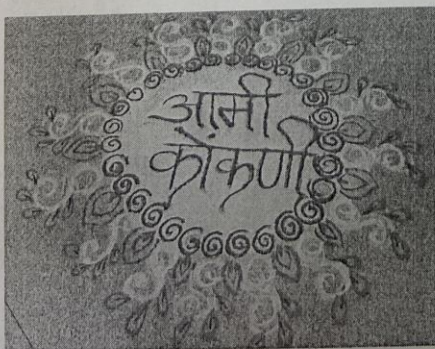 आमी
कोंकणी